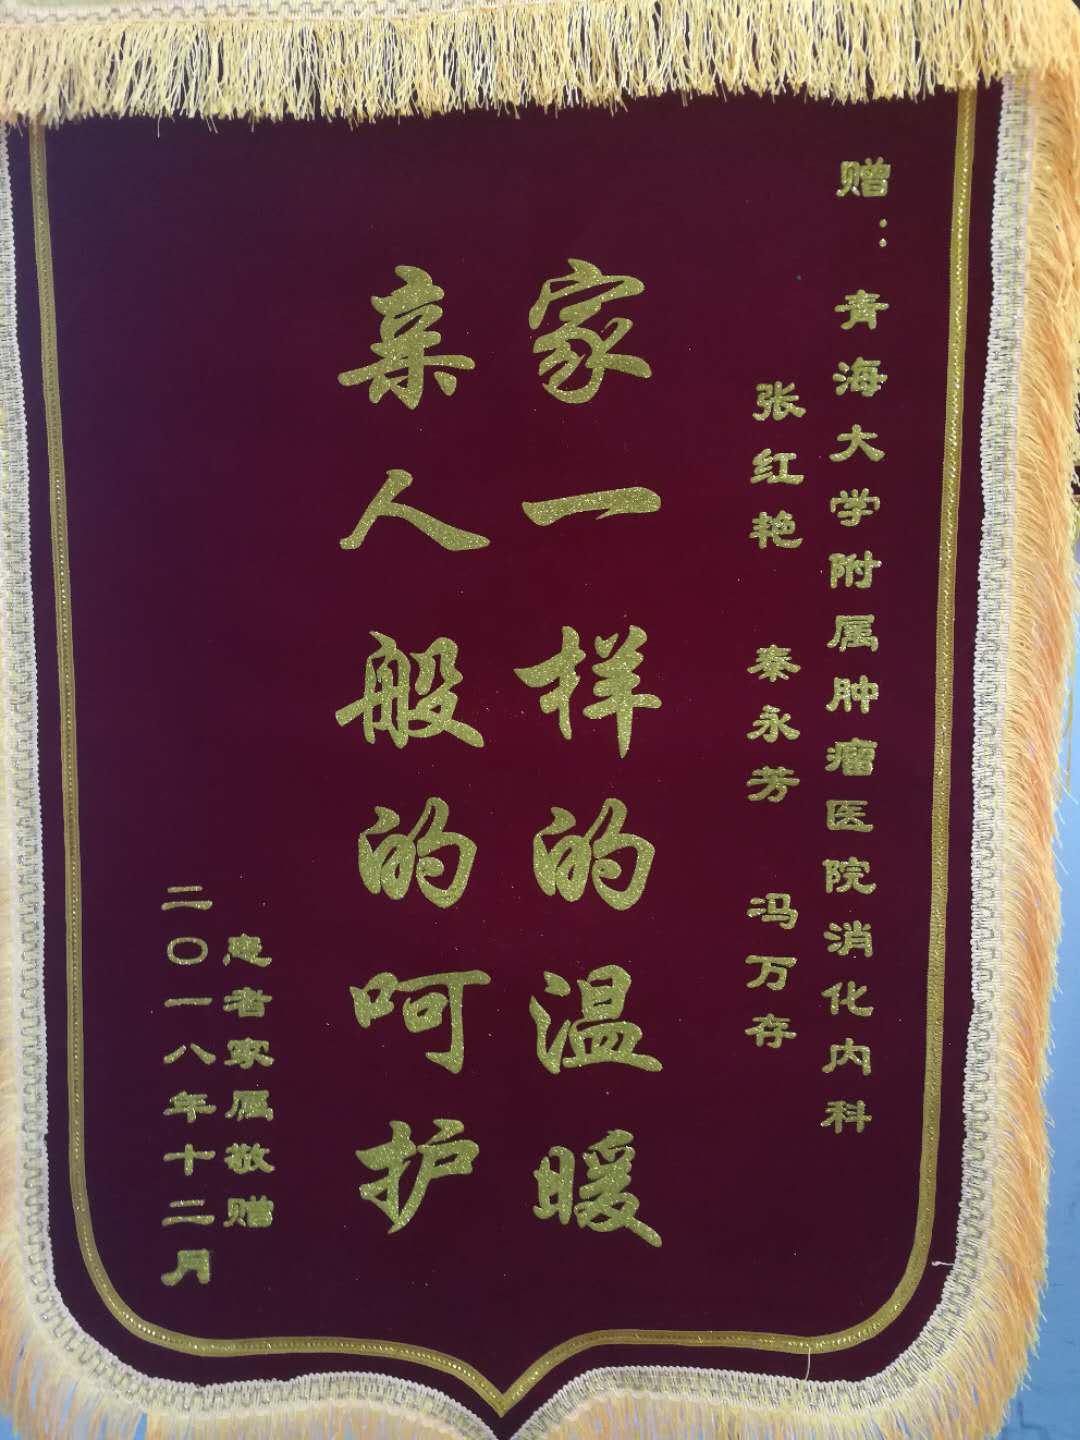 赠：青海大学附属肿瘤医院消化内科
张红艳 秦永芳 冯万存
家一样的温暖
亲人般的呵护
患者家属敬赠
二〇一八年十二月